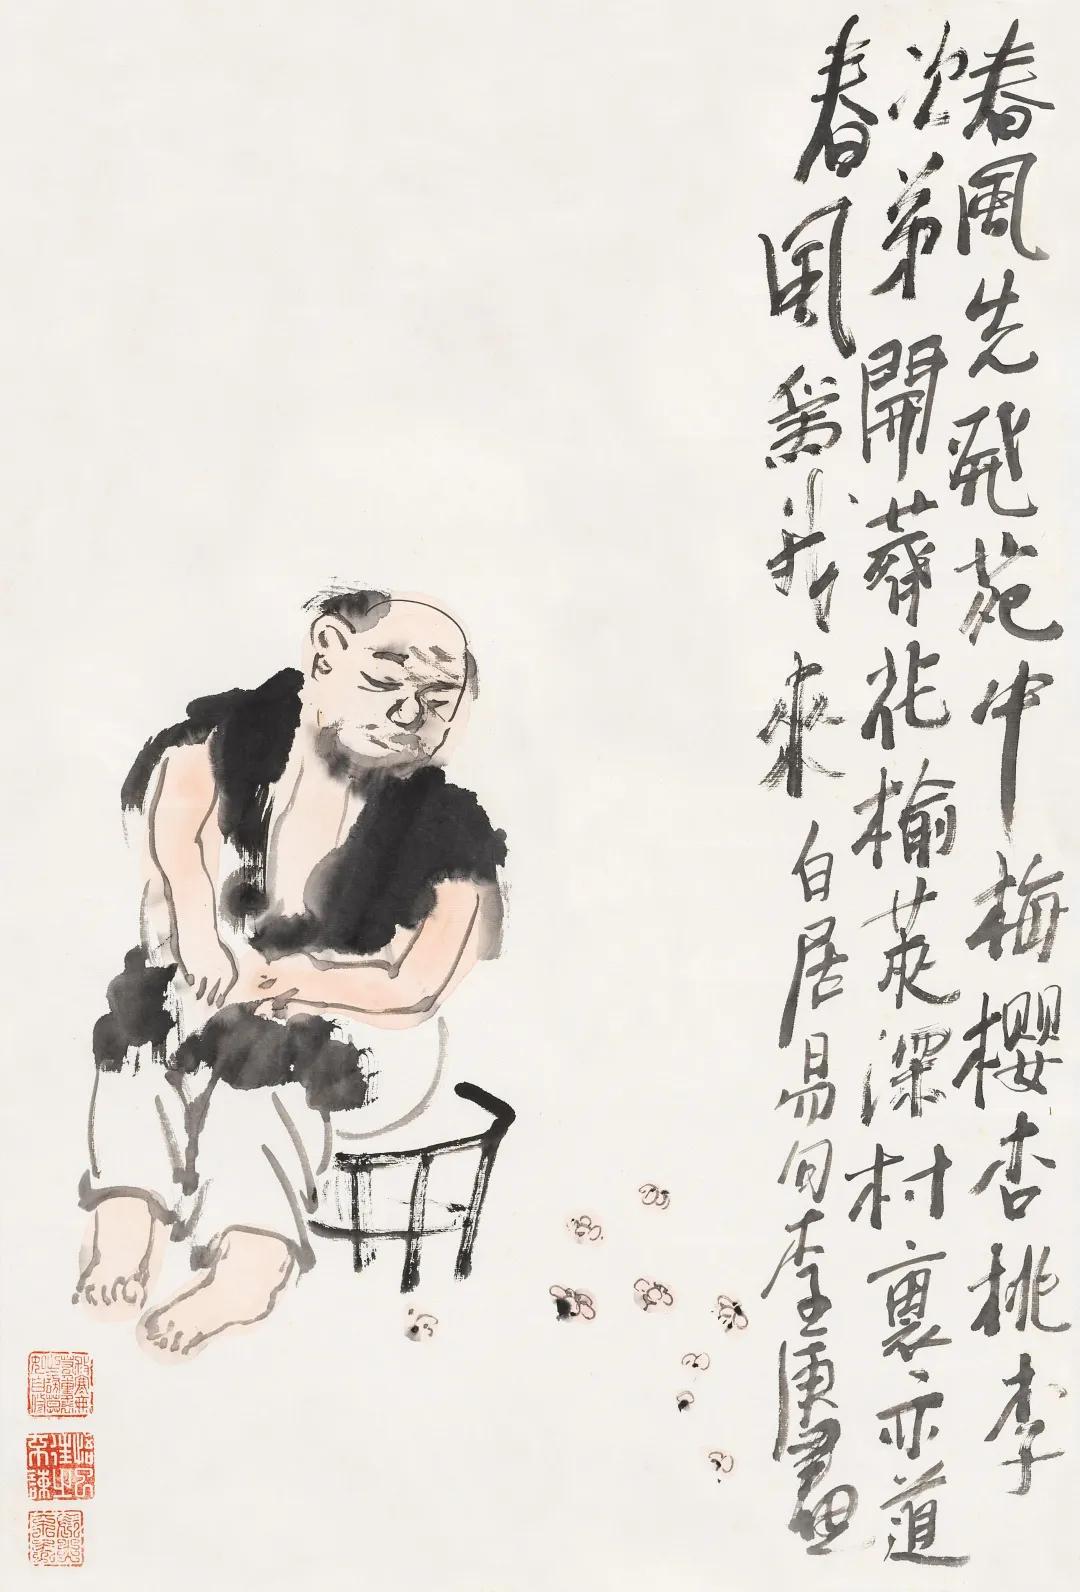 春風先發苑中梅櫻杏桃李
次第開薺花榆莢深村裏亦道
春風為我來
白居易句李 畫